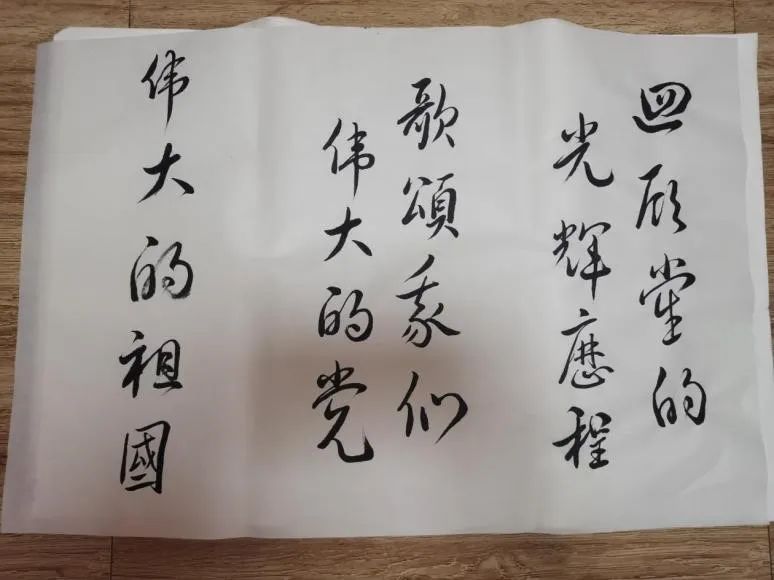 回顾党的
光輝歷程
歌頌我们
伟大的党
伟大的祖國